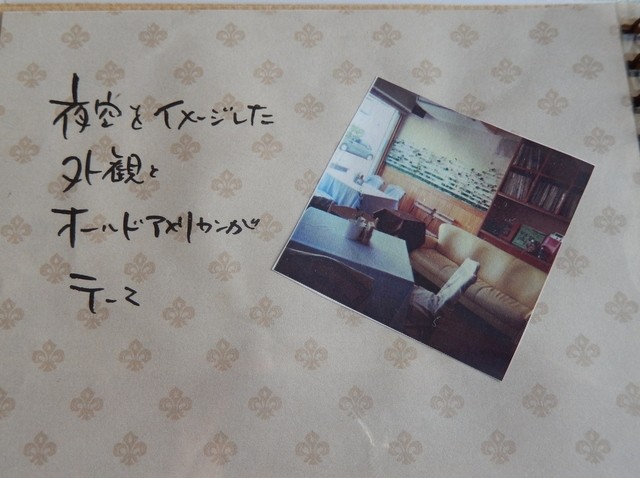 夜空をイメージした
外観と
オールドアメリカンが
テーマ